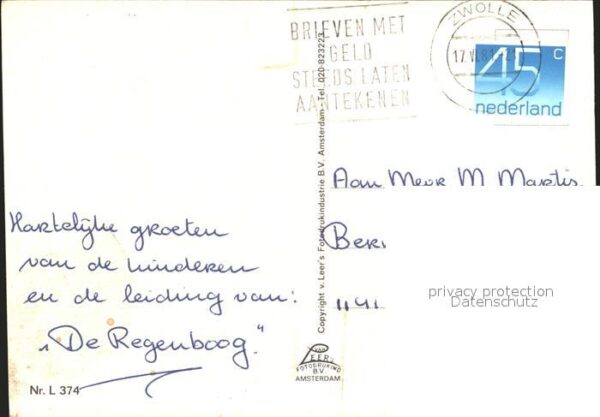 BRIEVEN MET
GELD
STEEDS LATEN
AANTEKENEN
ZWOLLE
17.VI.8
45 c
nederland
Copyright v. Leer's Fotodrukindustrie B.V. Amsterdam - Tel. 020-823223
Aan Mevr M. Martis
BER
1141
privacy protection
Datenschutz
Hartelijke groeten
van de kinderen
en de leiding van:
„De Regenboog."
Nr. L 374
VAN
LEER'S
FOTODRUKIND
B.V.
AMSTERDAM